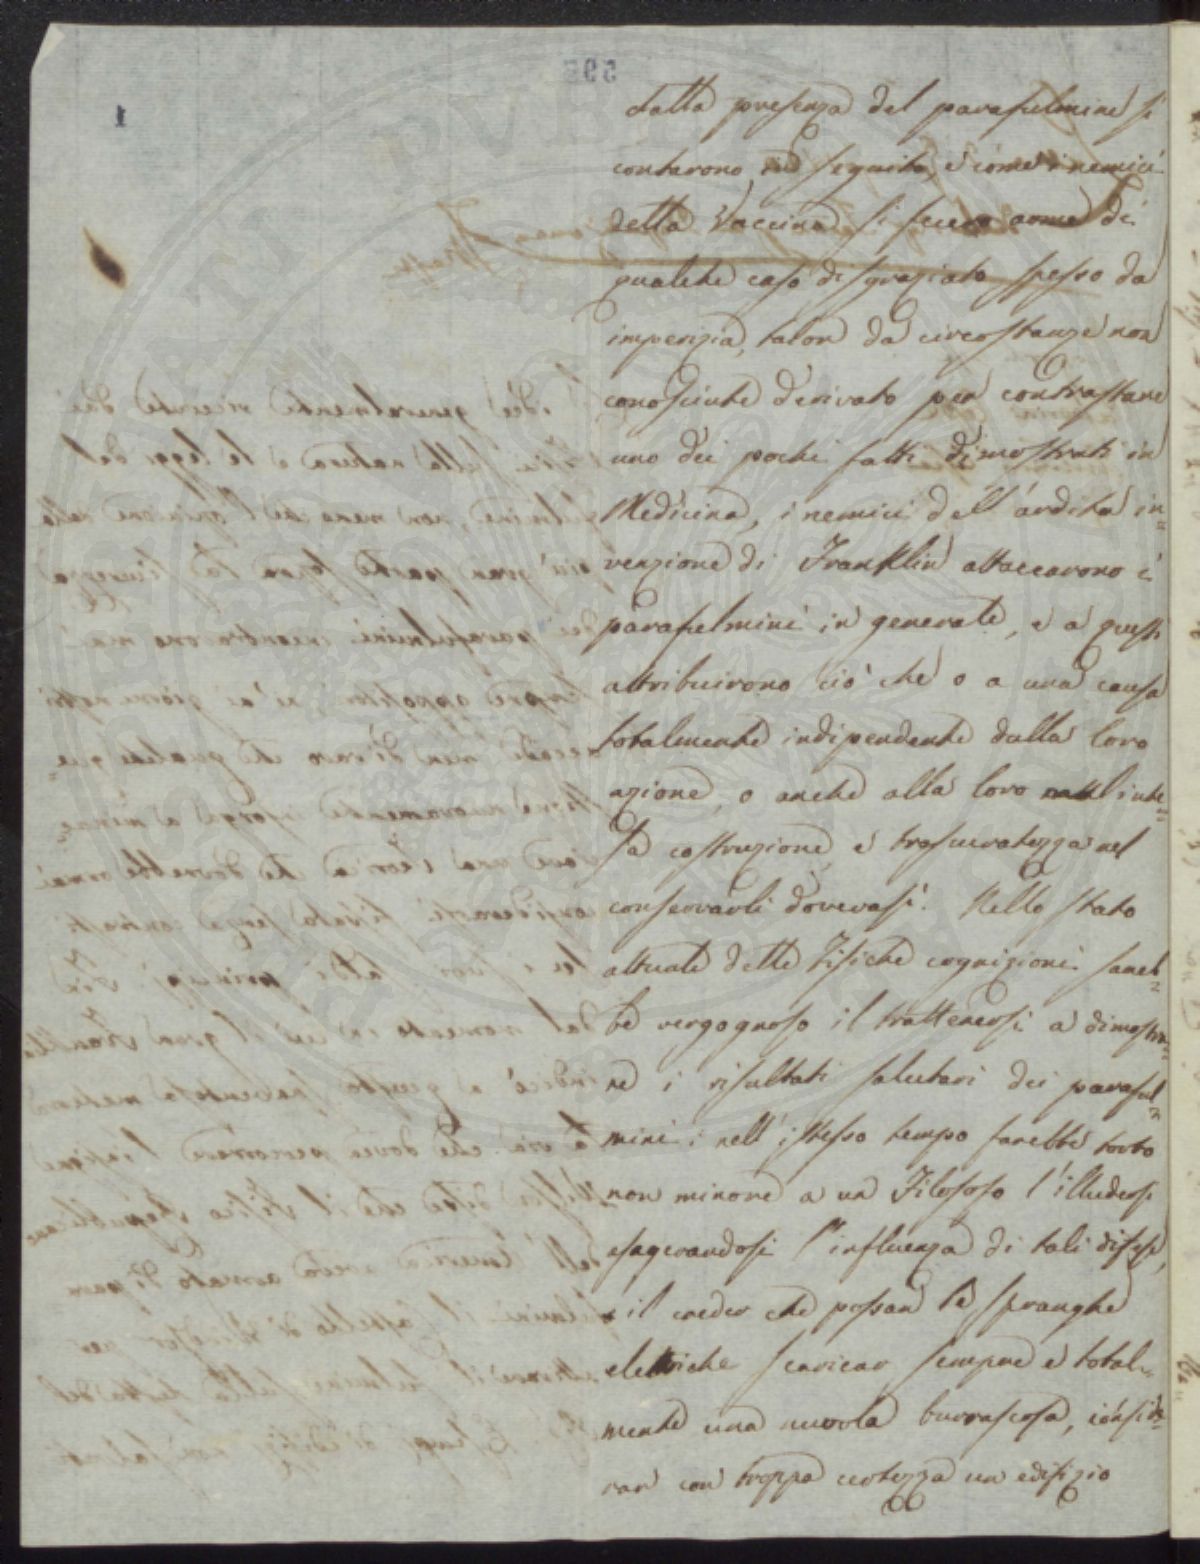 dalla presenza del parafulmine si
contarono in seguito, e come i nemici
della Vaccina si fecero arme di
qualche caso disgraziato spesso da
imperizia, talor da circostanze non
conosciute derivato per contrastare
uno dei pochi fatti dimostrati in
Medicina, i nemici dell'ardita in=
venzione di Franklin attaccarono i
parafulmini in generale, e a questi
attribuirono ciò che o a una causa
totalmente indipendente dalla loro
azione, o anche alla loro mal inte=
sa costruzione, e trascuratezza nel
conservarli dovevasi. Nello stato
attuale delle Fisiche cognizioni sareb=
be vergognoso il trattenersi a dimostra=
re i risultati salutari dei paraful=
mini; nell'istesso tempo sarebbe torto
non minore a un Filosofo l'illudersi
esagerandosi l'influenza di tali difese,
il creder che possan le spranghe
elettriche scaricar sempre e total=
mente una nuvola burrascosa,
con troppa certezza un edifizio